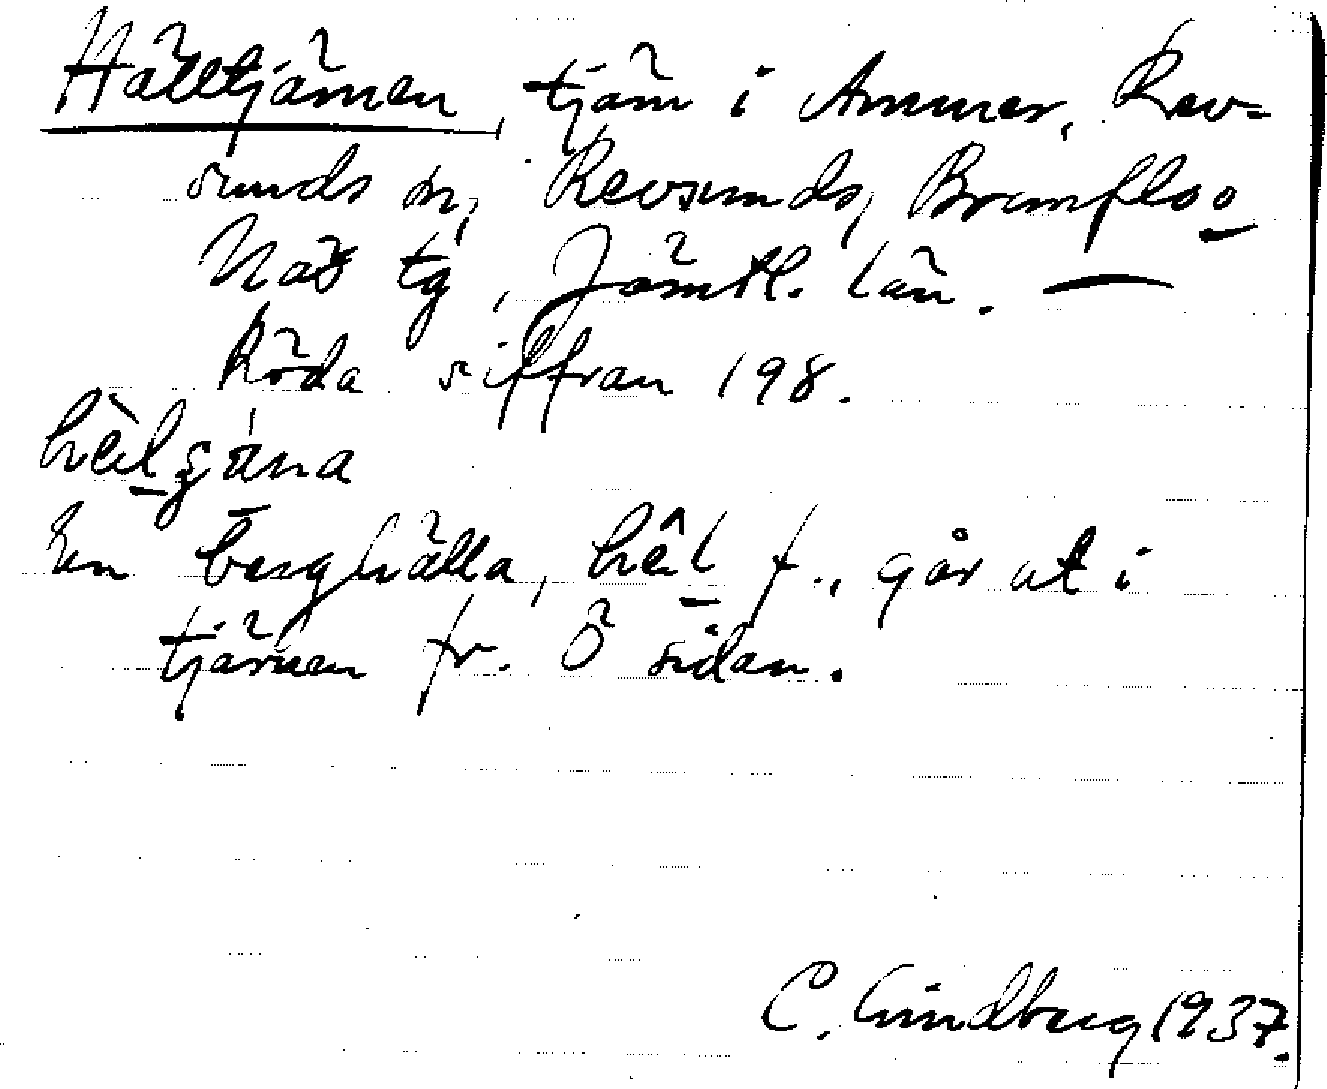 Hälltjärnen, tjärn i Ammer, Rev-
sunds sn, Revsunds, Brunflo o
Näs tg, Jämtl. län. —
Röda siffran 198.
En berghälla, hêl f., går ut i
tjärnen fr. Ö sidan.
C. Lindberg 1937.